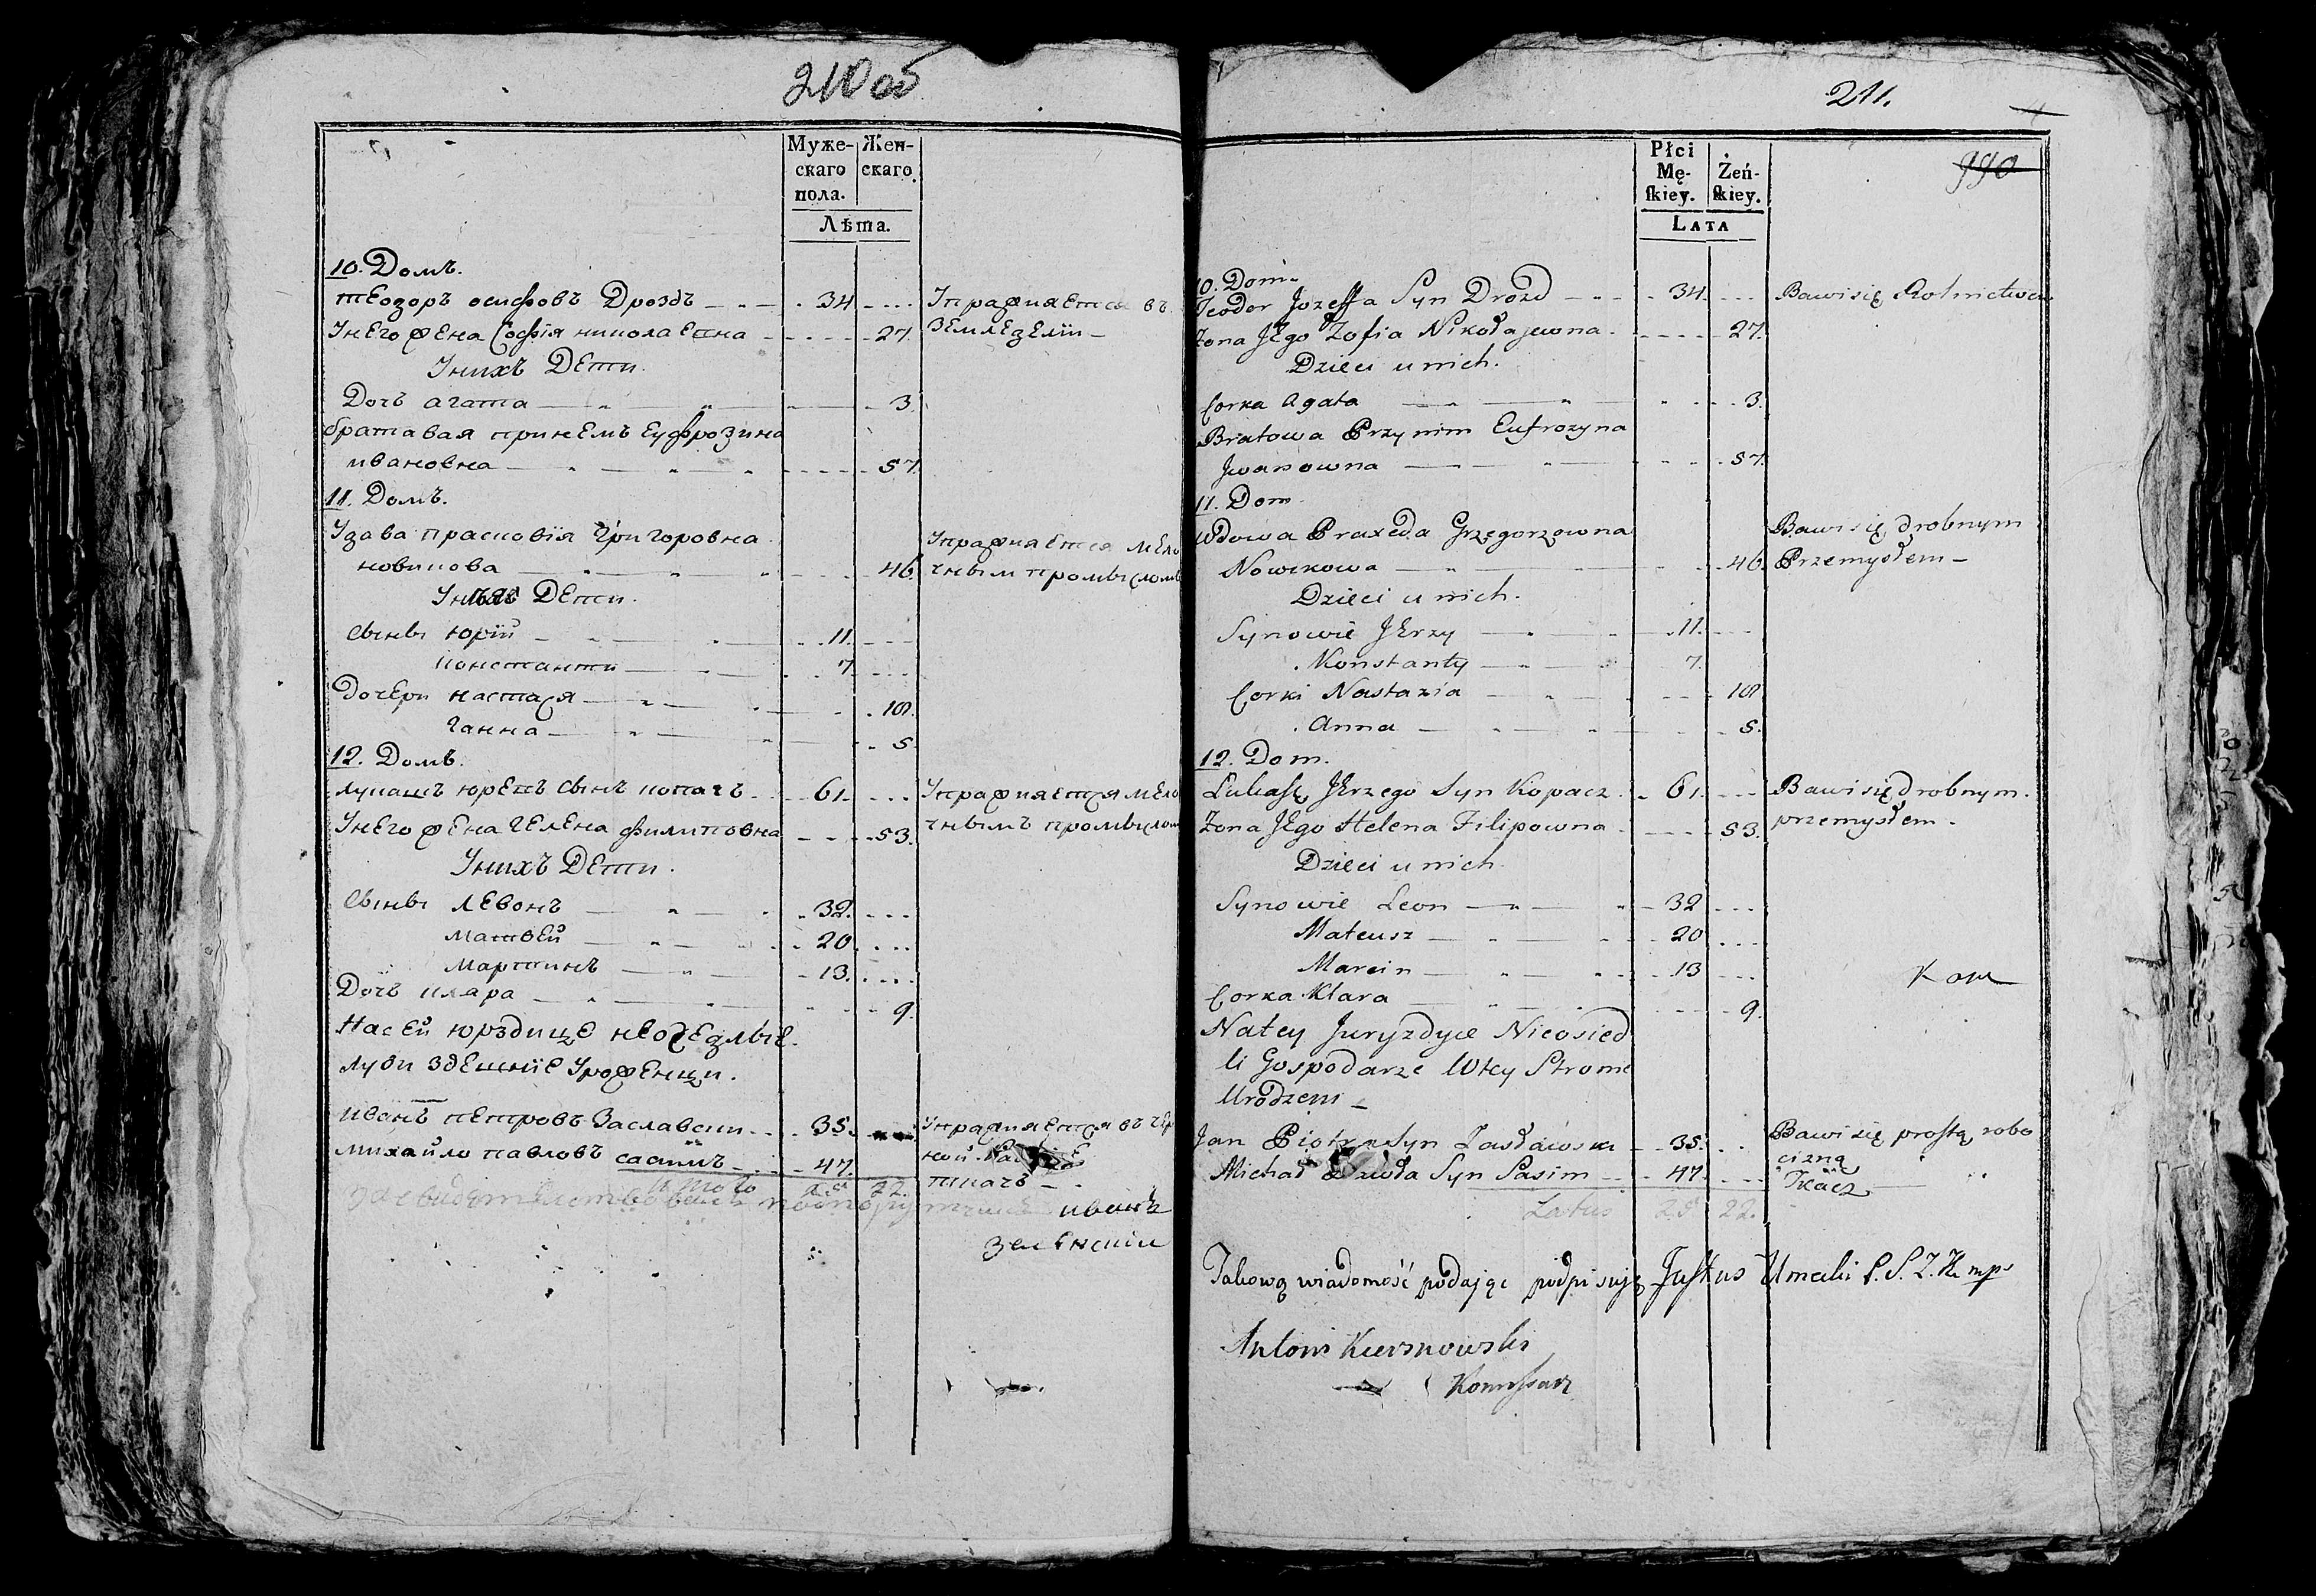 210 об
Муже-
скаго
пола.
Жен-
скаго.
Лѣта.
10. Домъ.
теодоръ осифовъ Дроздъ 34 Упражняется въ
Унего жена Софія николаевна 27. Земледелїи
Унихъ Дети.
Дочъ агата 3.
братавая принемъ Еуфрозина
ивановна 57.
11. Домъ.
Удава прасковїя Григоровна Упражняется мело
новикова 46. чнымъ промысломъ
Дети.
Сыны юрїй 11.
константи 7
Дочери настася 10.
Ганна 5.
12. Домъ.
лукашъ юревъ сынъ копачъ 61. Упражняется мело
Унего жена Гелена филиповна 53. чнымъ промысломъ
Унихъ Дети.
Сыны Левонъ 32.
матвей 20
мартинъ 13.
Дочъ клара 9.
На сей юрздице неоседлые
люди здешнїе Уроженци.
иванъ петровъ Заславски 35. Упражняется въ
михайло павловъ сасимъ 47. ной
итого 28 22. ткачъ
иванъ
211.
990
Płci
Mę-
ſkiey.
Żeń-
ſkiey.
LATA
10. Dom.
Teodor Jozeffa Syn Drozd 34. Bawi się Rolnictwem
Zona Jego Zofia Nikołajewna 27.
Dzieci u nich.
Corka Agata 3.
Bratowa Przy nim Eufrozyna
Jwanowna 57.
11. Dom
Wdowa Praxeda Grzegorzowna Bawi się drobnym
Nowikowa 46. Przemysłem
Dzieci u nich.
Synowie Jerzy 11.
Konstanty 7.
Corki Nastazia 10
Anna 5.
12. Dom.
Lukasz Jerzego Syn Kopacz 61. Bawi się drobnym
Zona Jego Helena Filipowna 53. przemysłem.
Dzieci u nich.
Synowie Leon 32
Mateusz 20
Marcin 13
Corka Klara 9.
Na tey Juryzdyce Nieosied
li Gospodarze W tey Stronie
Urodzeni
Jan Piotra Syn Zasławski 35. Bawi się prostą robo
cizną
Michał Pawła Syn Sasim 47. Tkacz
Latus 28 22.
Takową wiadomość podając podpisuję Justus
Antoni
Komissarz